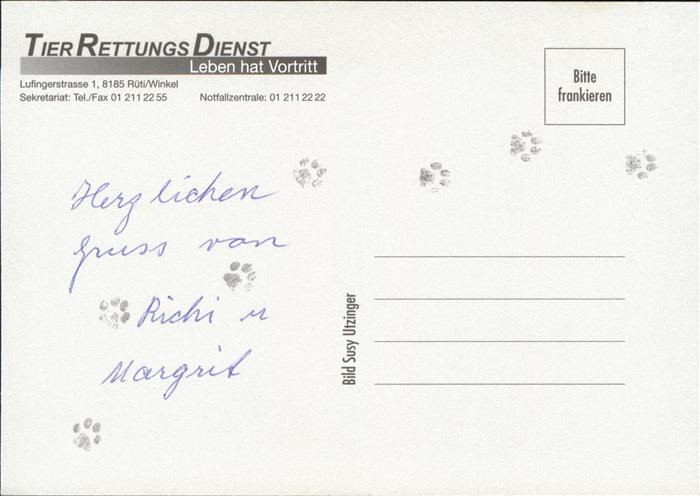 TIER RETTUNGS DIENST
Leben hat Vortritt
Lufingerstrasse 1, 8185 Rüti/Winkel
Sekretariat: Tel./Fax 01 211 22 55 Notfallzentrale: 01 211 22 22
Bitte
frankieren
Herzlichen
Gruss von
Richi u
Margrit
Bild Susy Utzinger